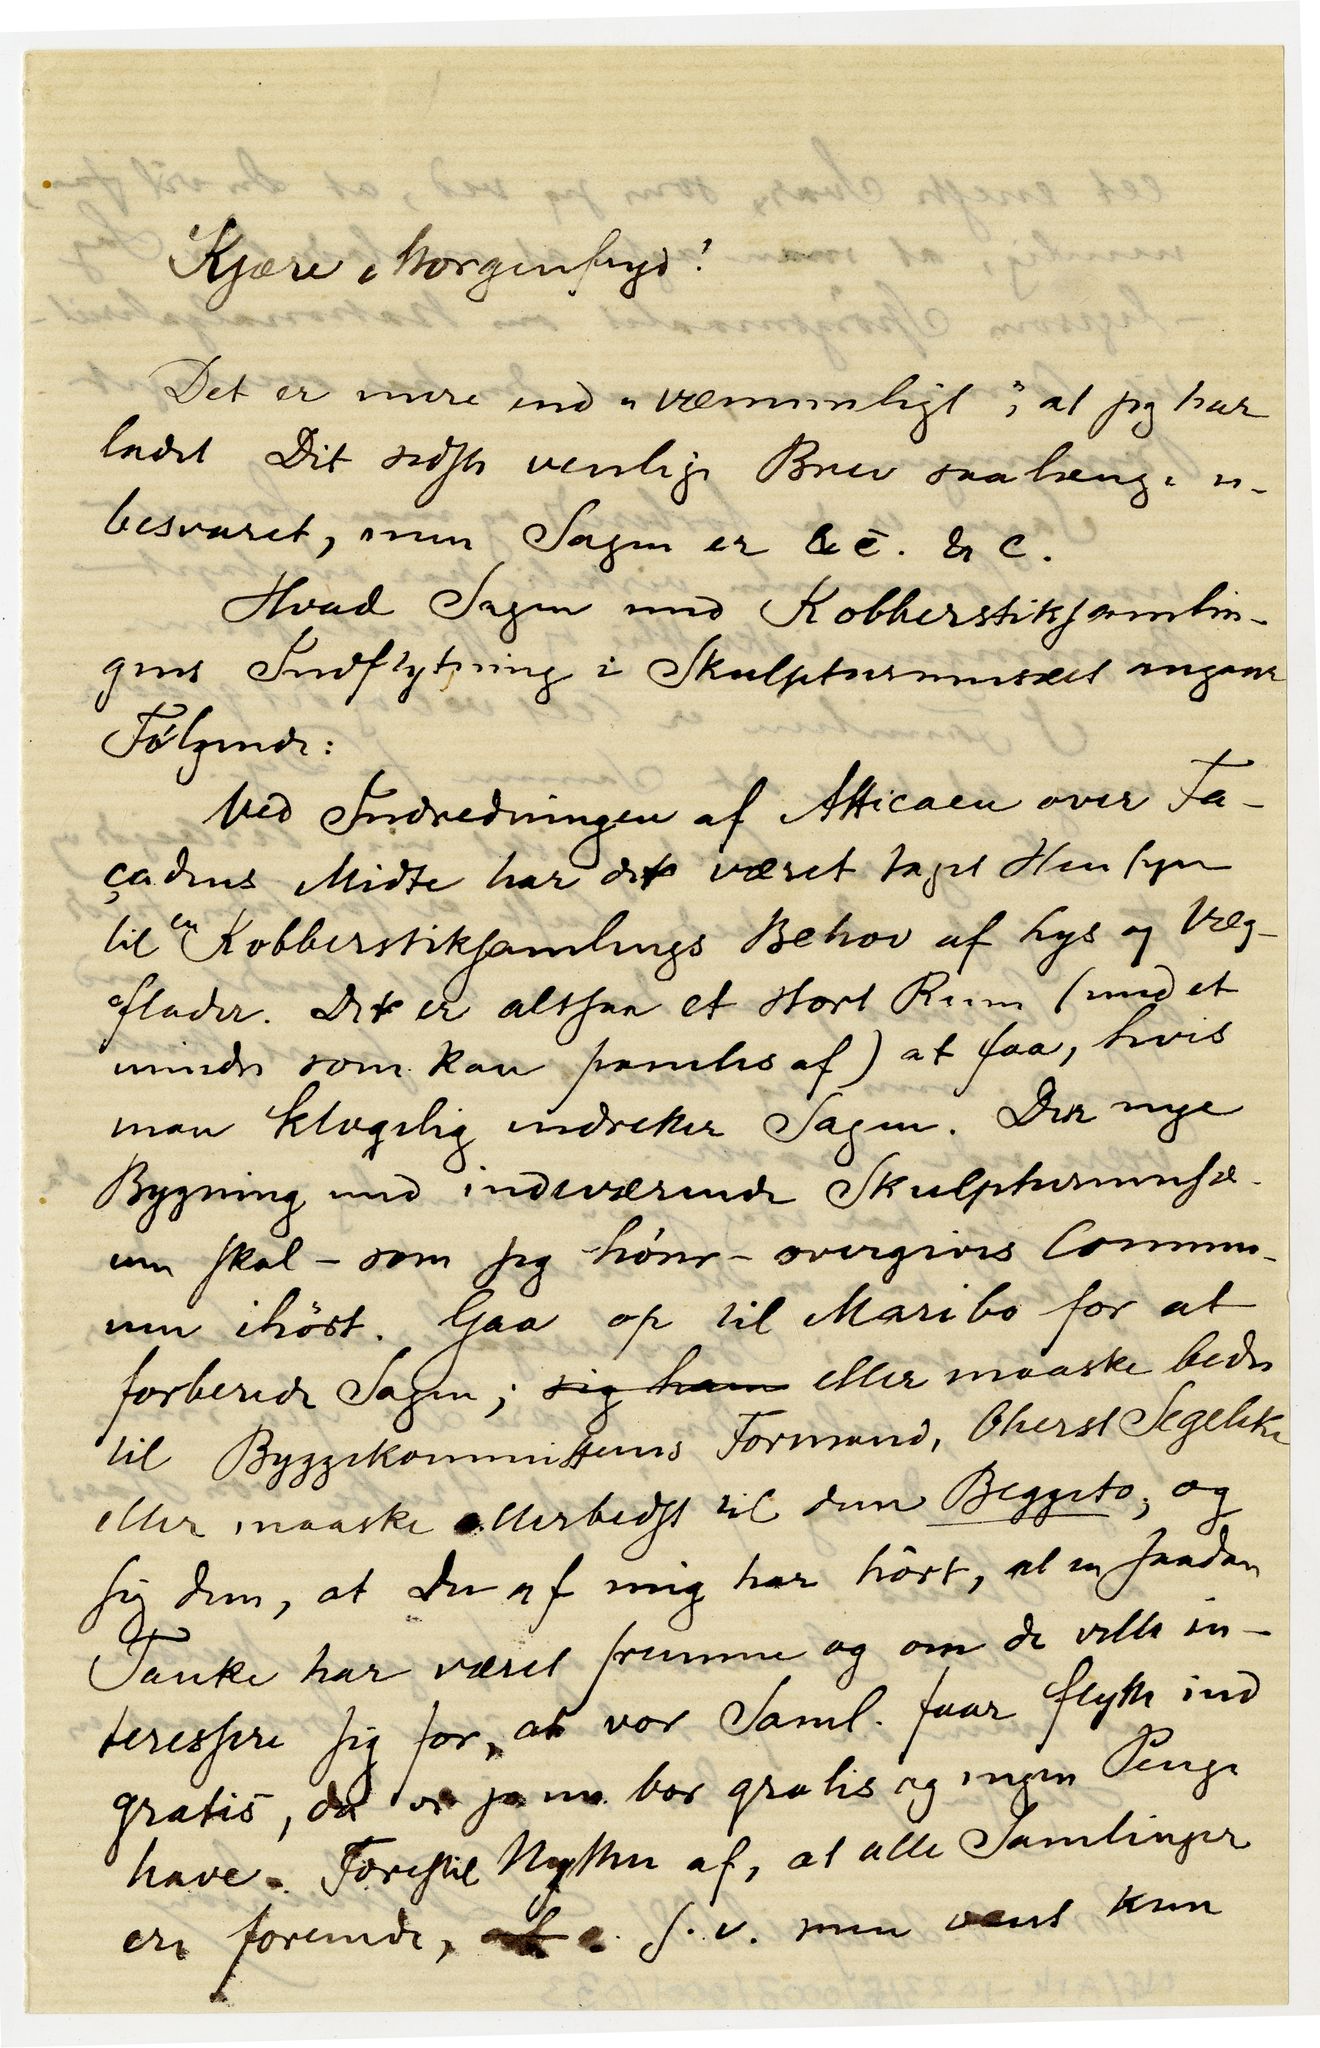 Kjære Morgenfryd!
Det er mere end „væmmeligt“, at jeg har
ladet Dit sidste venlige Brev saalænge u-
besvaret, men Sagen er &c. &c.
Hvad Sagen med Kobberstiksamlin-
gens Indflytning i Skulpturmuseet angaar
Følgende:
Ved Indredningen af Atticaen over Fa-
çadens Midte har det været taget Hensyn
til en Kobberstiksamlings Behov af Lys og Væg-
flader. Det er altsaa et stort Rum (med et
mindre som kan skilles af) at faa, hvis
man klogelig indretter Sagen. Den nye
Bygning med indeværende Skulpturmusæ-
um skal – som jeg hører – overgives Commu-
nen ihöst. Gaa op til Maribo for at
forberede Sagen; sig ham eller maaske bedre
til Byggekommitteens Formand, Oberst Segelcke
eller maaske allerbedst til dem Beggeto; og
sig dem, at Du af mig har hört, at en saadan
Tanke har været fremme og om de ville in-
teressere sig for, at vor Saml. faar flytte ind
gratis, da vi jo nu bor gratis og ingen Penge
have. Forestil Nytten af, at alle Samlinger
ere forenede, s. v. men vent kun